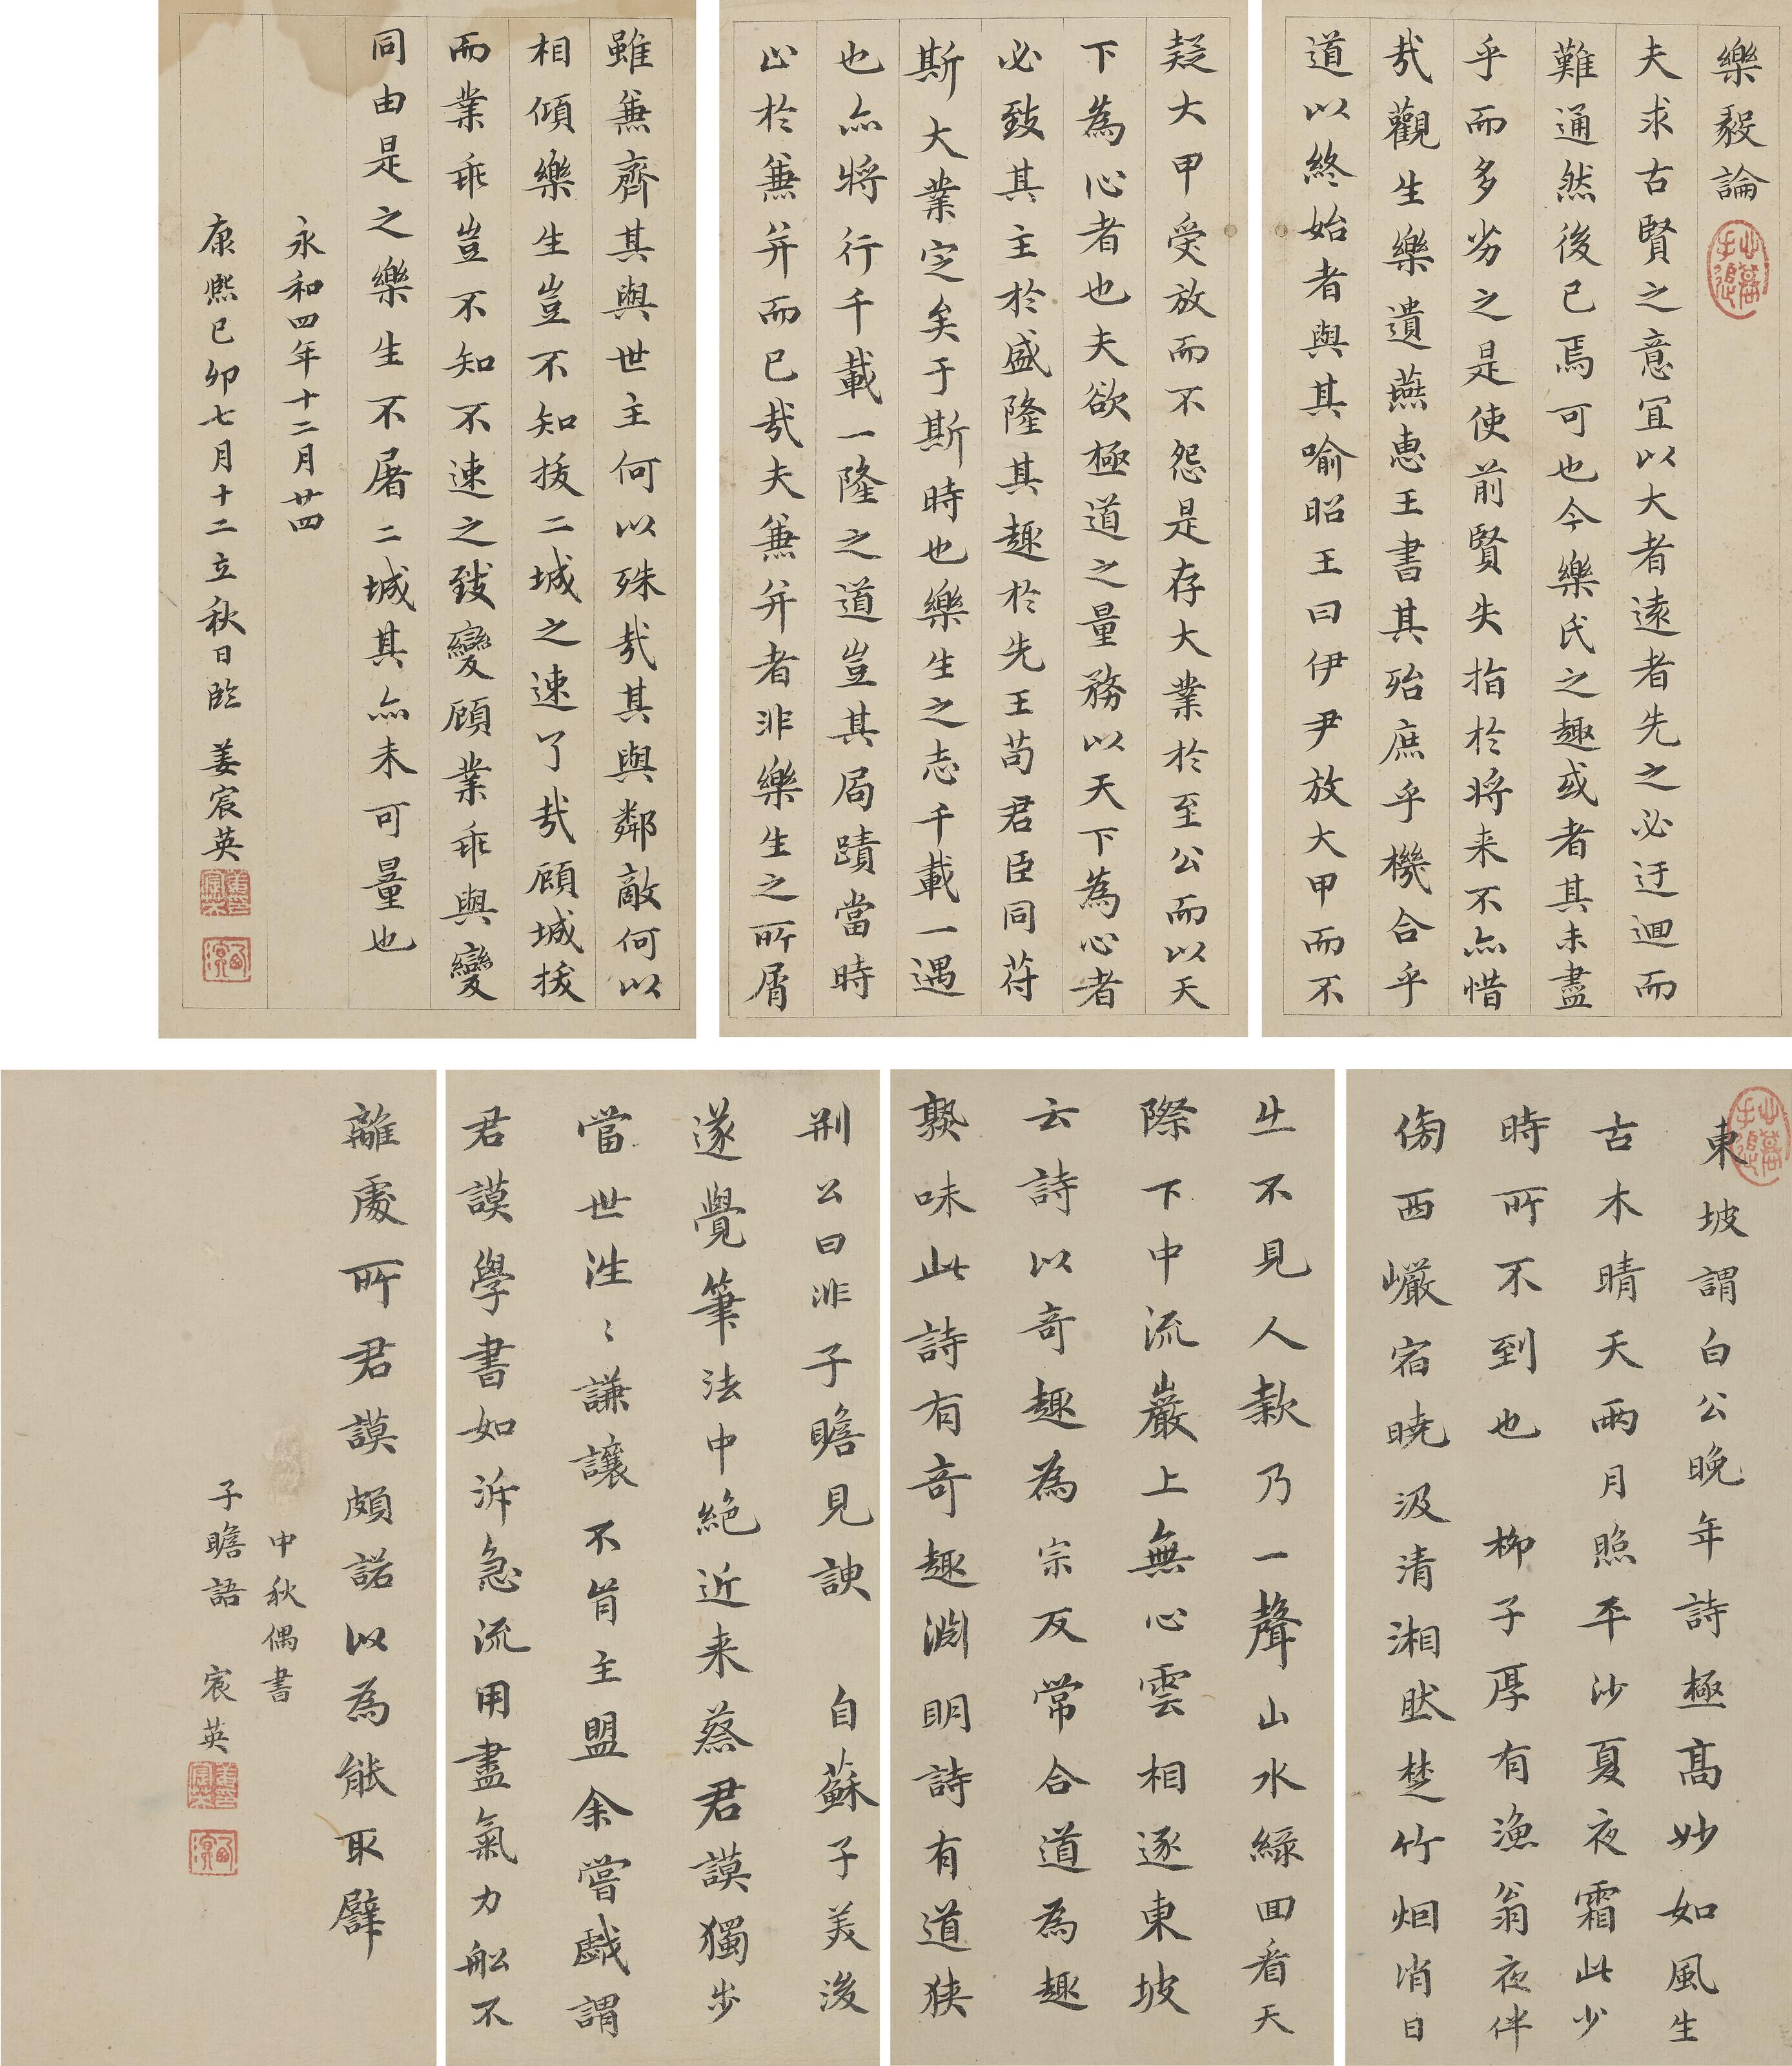 樂毅論
夫求古賢之意宜以大者遠者先之必迂迴而
難通然後已焉可也今樂氏之趣或者其未盡
乎而多劣之是使前賢失指於將来不亦惜
哉觀生樂遺燕惠王書其殆庶乎機合乎
道以終始者與其喻昭王曰伊尹放大甲而不
疑大甲受放而不怨是存大業於至公而以天
下為心者也夫欲極道之量務以天下為心者
必致其主於盛隆其趣於先王苟君臣同符
斯大業定矣于斯時也樂生之志千載一遇
也亦將行千載一隆之道豈其局蹟當時
止於兼并而已哉夫兼并者非樂生之所屑
雖兼齊其與世主何以殊哉其與鄰敵何以
相傾樂生豈不知拔二城之速了哉顧城拔
而業乖豈不知不速之致變顧業乖與變
同由是之樂生不屠二城其亦未可量也
永和四年十二月廿四
康熙己卯七月十二立秋日臨 姜宸英
東坡謂白公晚年詩極高妙如風生
古木晴天雨月照平沙夏夜霜此少
時所不到也 柳子厚有漁翁夜伴
傍西巖宿曉汲清湘然楚竹烟消日
出不見人欸乃一聲山水綠回看天
際下中流巖上無心雲相逐東坡
云詩以奇趣為宗反常合道為趣
熟味此詩有奇趣淵明詩有道狹
荆公曰非子瞻見諛 自蘇子美後
遂覺筆法中絕近来蔡君謨獨步
當世往〻謙讓不肯主盟余嘗戲謂
君謨學書如泝急流用盡氣力船不
離處所君謨頗諾以為能取譬
中秋偶書
子瞻語 宸英